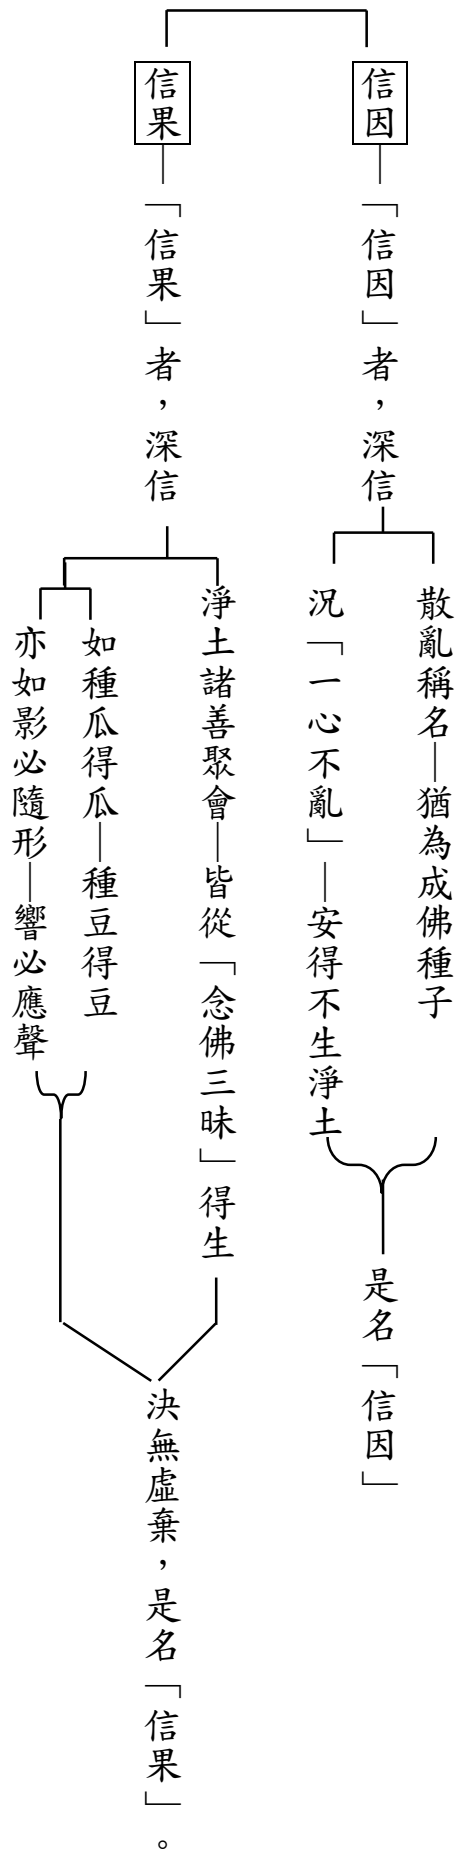 信因—「信因」者，深信
散亂稱名—猶為成佛種子
況「一心不亂」—安得不生淨土
是名「信因」
信果—「信果」者，深信
淨土諸善聚會—皆從「念佛三昧」得生
如種瓜得瓜—種豆得豆
亦如影必隨形—響必應聲
決無虛棄，是名「信果」。